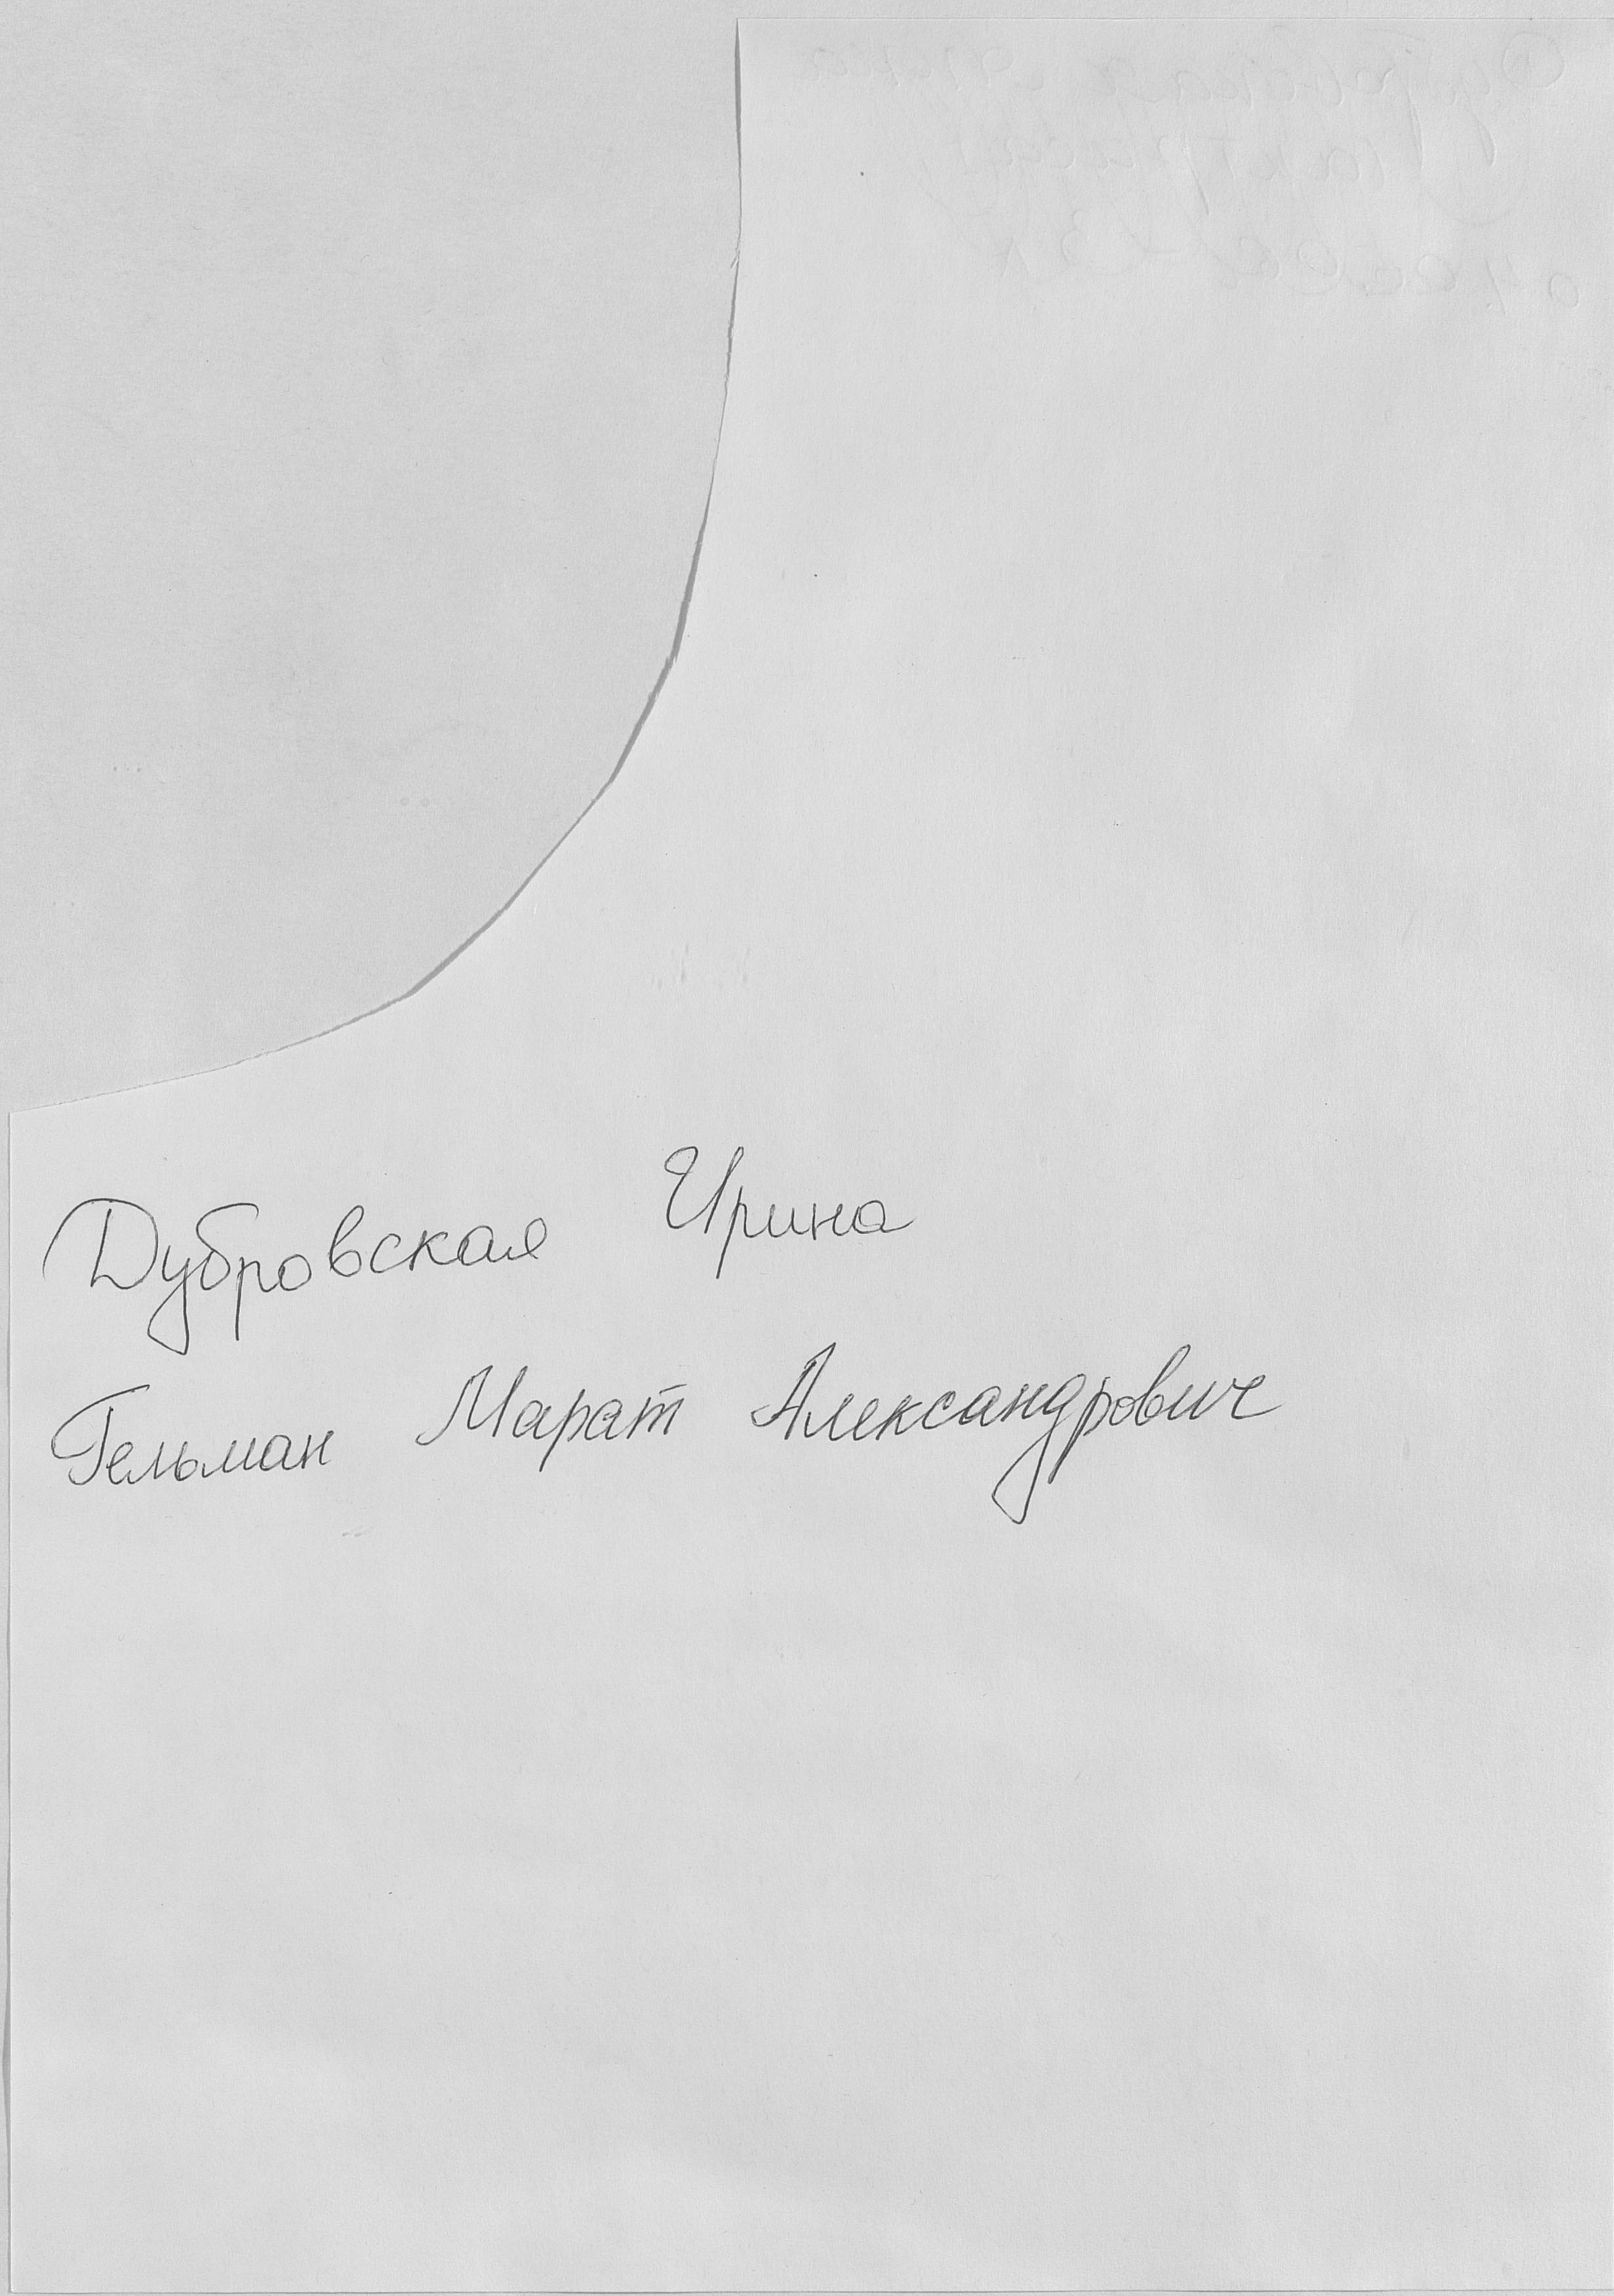 Дубровская Ирина
Гельман Марат Александрович